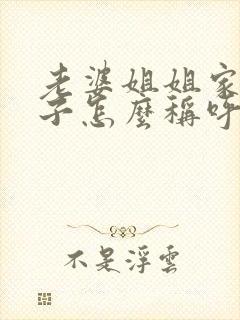 老婆姐姐家
子怎麼稱呼
不是浮雲